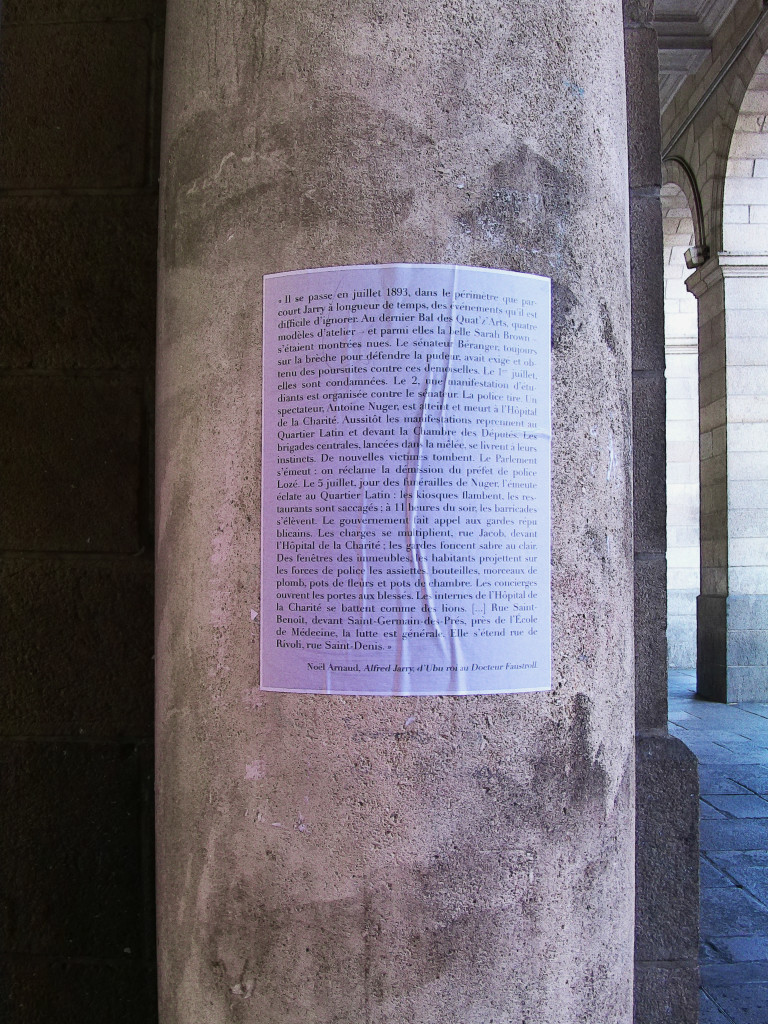 « Il se passe en juillet 1893, dans le périmètre que par-
court Jarry à longueur de temps, des événements qu'il est
difficile d'ignorer. Au dernier Bal des Quat'z'Arts, quatre
modèles d'atelier – et parmi elles la belle Sarah Brown –
s'étaient montrées nues. Le sénateur Béranger, toujours
sur la brèche pour défendre la pudeur, avait exigé et ob-
tenu des poursuites contre ces demoiselles. Le 1er juillet,
elles sont condamnées. Le 2, une manifestation d'étu-
diants est organisée contre le sénateur. La police tire. Un
spectateur, Antoine Nuger, est atteint et meurt à l'Hôpital
de la Charité. Aussitôt les manifestations reprennent au
Quartier Latin et devant la Chambre des Députés. Les
brigades centrales, lancées dans la mêlée, se livrent à leurs
instincts. De nouvelles victimes tombent. Le Parlement
s'émeut : on réclame la démission du préfet de police
Lozé. Le 5 juillet, jour des funérailles de Nuger, l'émeute
éclate au Quartier Latin : les kiosques flambent, les res-
taurants sont saccagés ; à 11 heures du soir, les barricades
s'élèvent. Le gouvernement fait appel aux gardes répu
blicains. Les charges se multiplient, rue Jacob, devant
l'Hôpital de la Charité ; les gardes foncent sabre au clair.
Des fenêtres des immeubles, les habitants projettent sur
les forces de police les assiettes, bouteilles, morceaux de
plomb, pots de fleurs et pots de chambre. Les concierges
ouvrent les portes aux blessés. Les internes de l'Hôpital de
la Charité se battent comme des lions. [...] Rue Saint-
Benoît, devant Saint-Germain-des-Prés, près de l'École
de Médecine, la lutte est générale. Elle s'étend rue de
Rivoli, rue Saint-Denis. »
Noël Arnaud, Alfred Jarry, d'Ubu roi au Docteur Faustroll